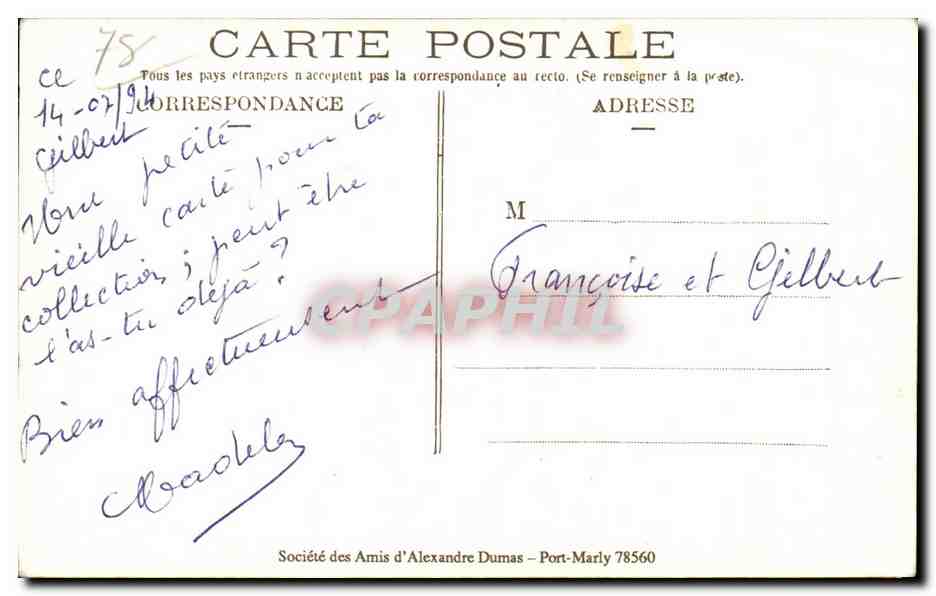 75
CARTE POSTALE
Tous les pays etrangers n'acceptent pas la correspondance au recto. (Se renseigner à la poste).
CORRESPONDANCE
ADRESSE
ce
14-07/94
Gilbert
Une petite
vieille carte pour ta
collection ; peut être
l'as-tu déjà ?
Bien affectueusement
M
Françoise et Gilbert
CPAPHIL
Société des Amis d'Alexandre Dumas – Port-Marly 78560